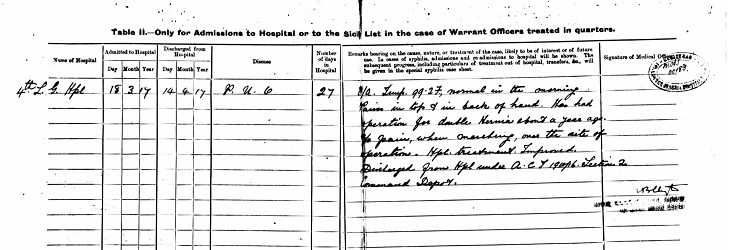 Table II.—Only for Admissions to Hospital or to the Sick List in the case of Warrant Officers treated in quarters.
Name of Hospital
Admitted to Hospital
Day Month Year
Discharged from Hospital
Day Month Year
Disease
Number of days in Hospital
Remarks bearing on the cause, nature, or treatment of the case, likely to be of interest or of future
use. In cases of syphilis, admissions and re-admissions to hospital will be shown. The
subsequent progress, including particulars of treatment out of hospital, transfers, &c., will
be given in the special syphilis case sheet.
Signature of Medical Officer
4th L. G. Hpl 18 3 17 14 4 17 P. U. O 27
Temp. 99.2 F, normal in the morning
Pains in top & in back of head. Has had
operation for double Hernia about a year ago.
pain, when marching, over the site of
operation. Hpl. treatment. Improved.
Discharged from Hpl under A.C.I Section 2
Command Depot.